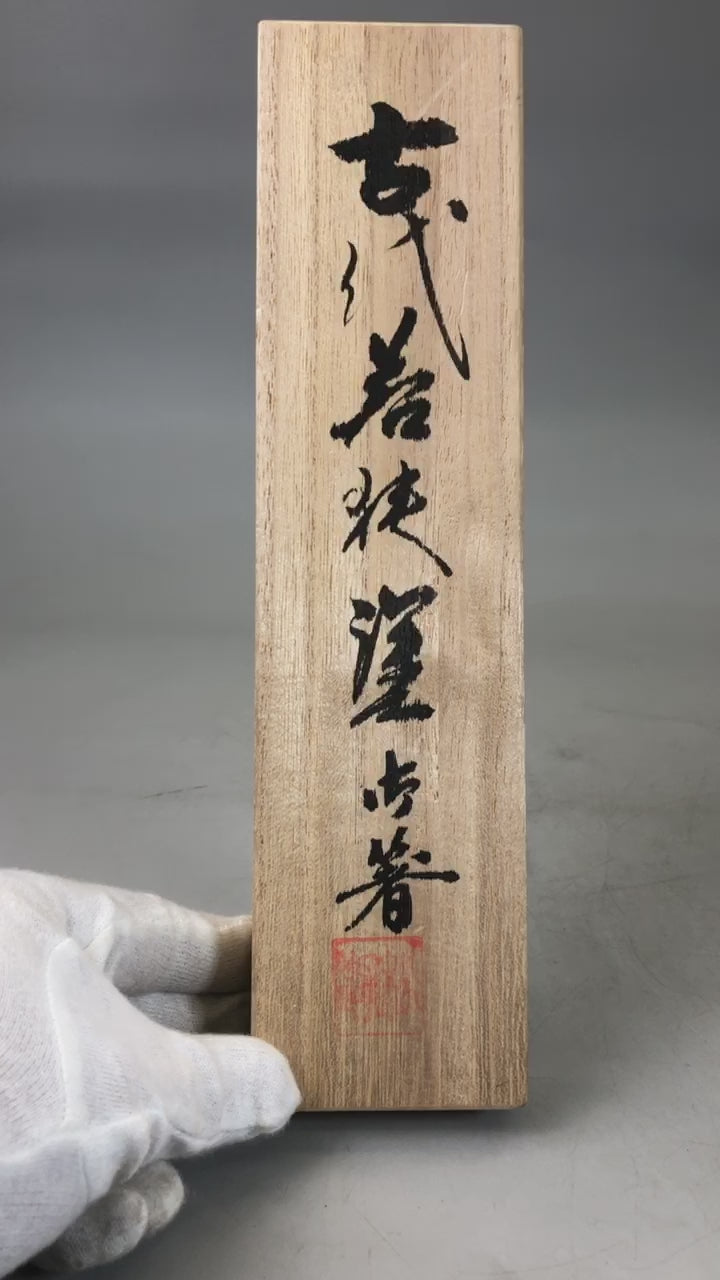 古代若狭塗御箸